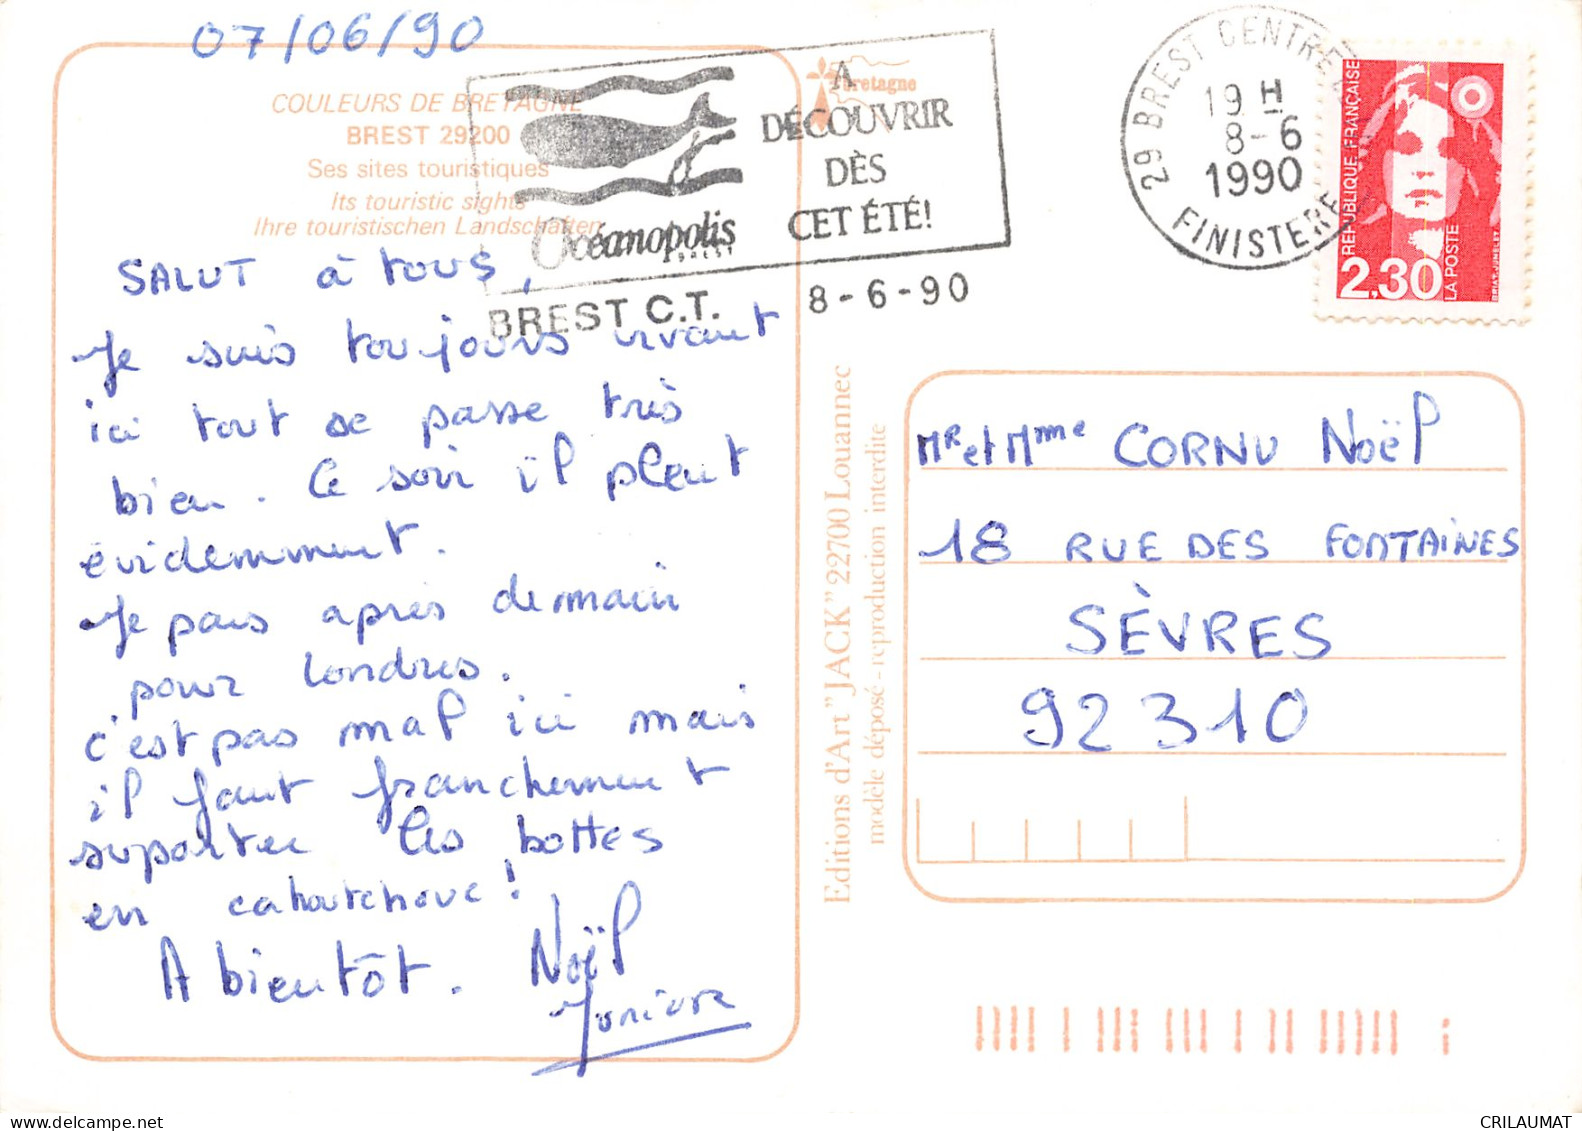 07/06/90
COULEURS DE BRETAGNE
BREST 29200
Ses sites touristiques
Its touristic sights
Ihre touristischen Landschaften
Bretagne
Océanopolis
BREST
A
DÉCOUVRIR
DÈS
CET ÉTÉ!
BREST C.T. 8-6-90
29 BREST CENTRE
19 H
8-6
1990
FINISTERE
REPUBLIQUE FRANÇAISE
2,30
LA POSTE
SALUT à tous,
Je suis toujours vivant
ici tout se passe très
bien. Ce soir il pleut
évidemment.
Je pars après demain
pour Londres.
c'est pas mal ici mais
il faut franchement
suporter les bottes
en cahoutchouc!
A bientôt. Noël
Junior
Editions d'Art "JACK" 22700 Louannec
modèle déposé - reproduction interdite
Mr et Mme CORNU Noël
18 RUE DES FONTAINES
SÈVRES
92310
CRILAUMAT